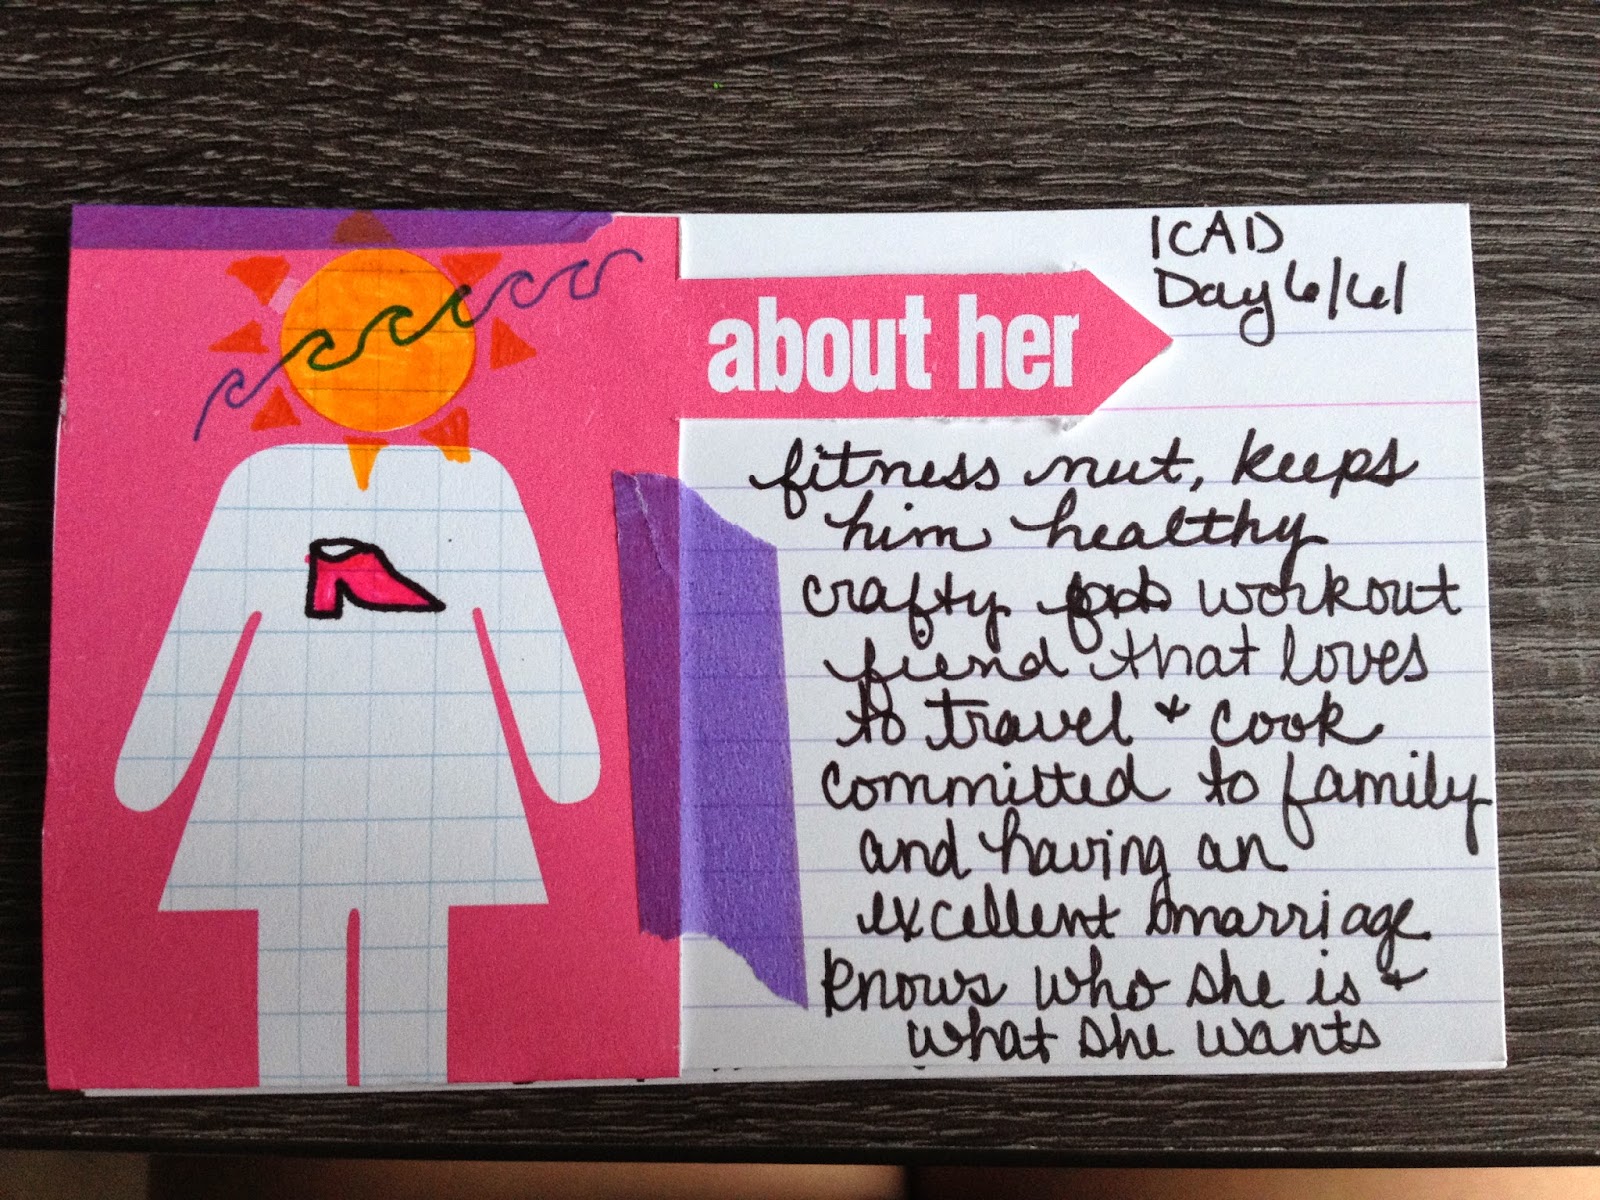 ICAD
Day 6/61
about her
fitness nut, keeps
him healthy
crafty workout
fiend that loves
to travel & cook
committed to family
and having an
excellent marriage
knows who she is &
what she wants